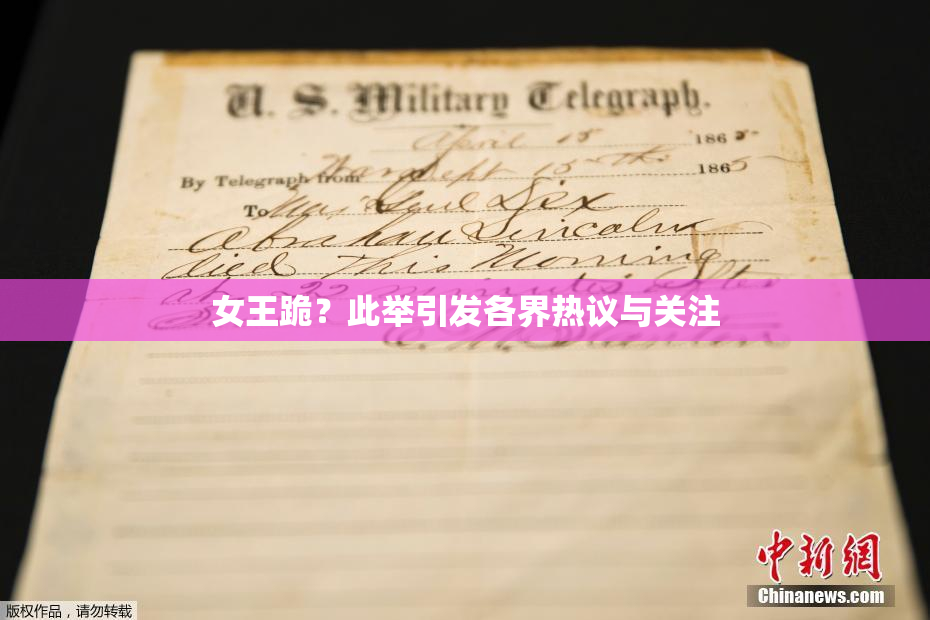 U. S. Military Telegraph.
April 15 1865
By Telegraph from War Dept 15th 1865
To Maj Genl Dix
Abraham Lincoln
died This Morning
at 22 minutes after
女王跪？此举引发各界热议与关注
中新网
Chinanews.com
版权作品，请勿转载